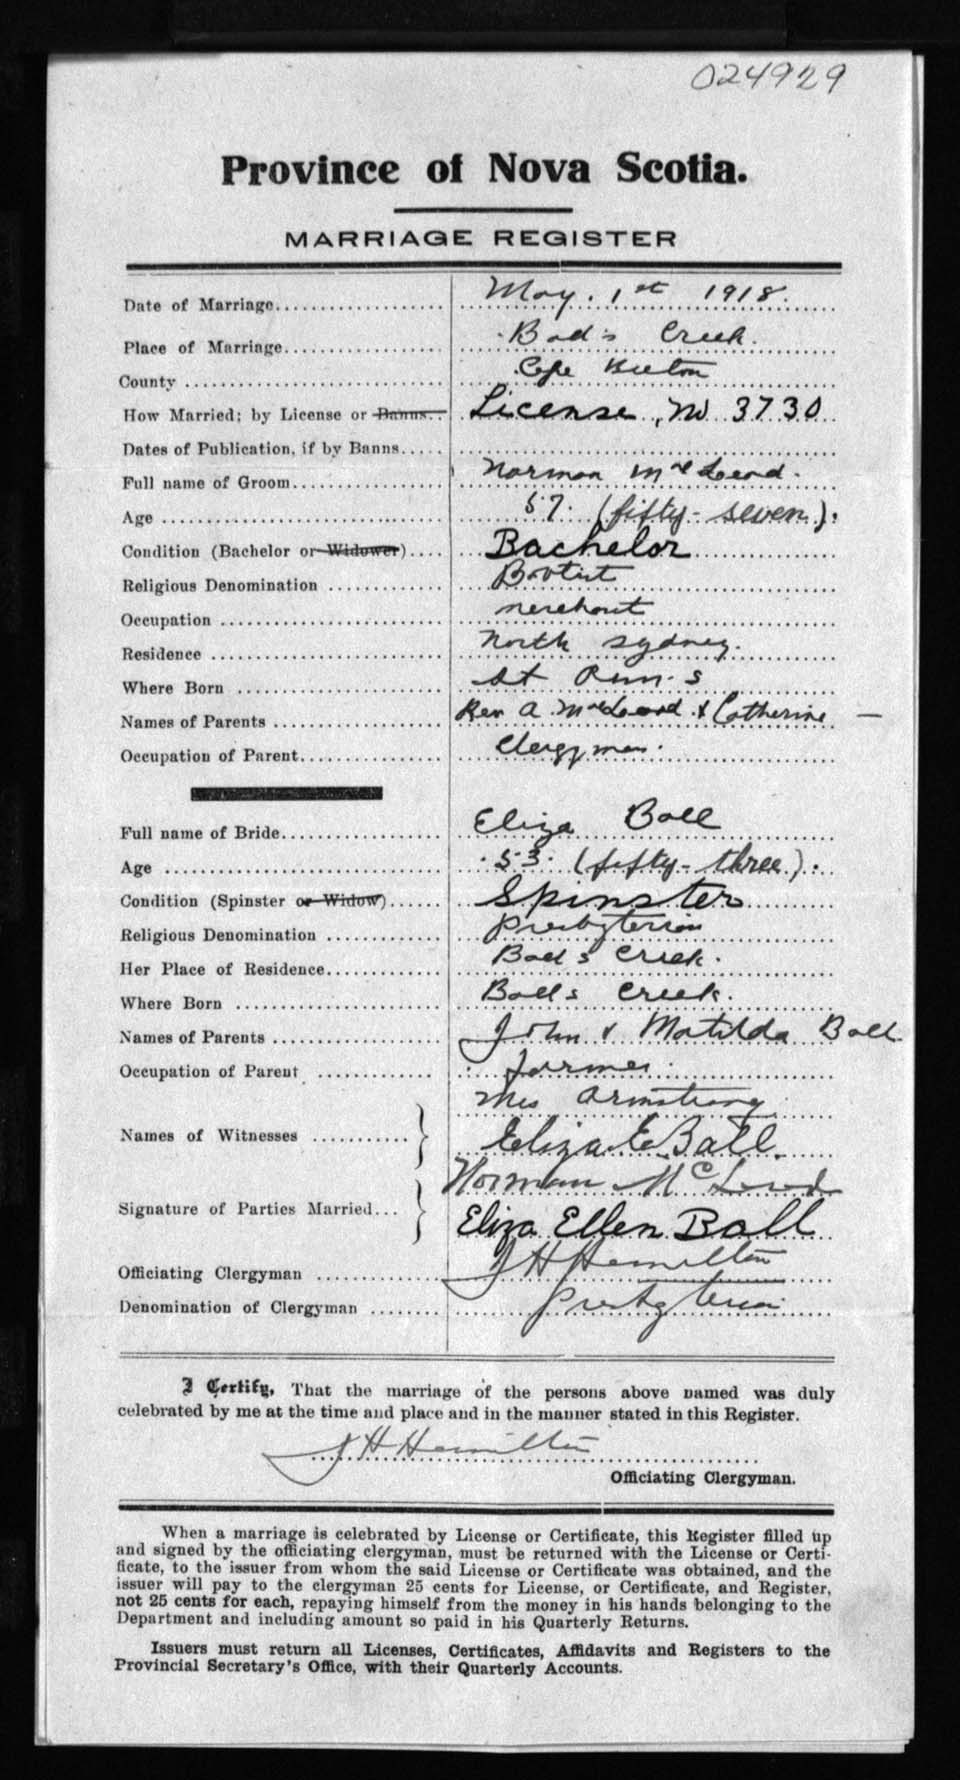 024929
Province of Nova Scotia.
MARRIAGE REGISTER
Date of Marriage May. 1st 1918.
Place of Marriage Ball's Creek.
County Cape Breton
How Married; by License or Banns License, No 3730
Dates of Publication, if by Banns
Full name of Groom Norman McLeod.
Age 57. (fifty-seven).
Condition (Bachelor or Widower) Bachelor
Religious Denomination Baptist
Occupation merchant
Residence North Sydney.
Where Born St Ann's
Names of Parents Rev A McLeod & Catherine —
Occupation of Parent Clergyman.
Full name of Bride Eliza Ball
Age 53. (fifty-three).
Condition (Spinster or Widow) Spinster
Religious Denomination Presbyterian
Her Place of Residence Ball's Creek.
Where Born Balls Creek.
Names of Parents John & Matilda Ball
Occupation of Parent farmer.
Mrs Armstrong
Names of Witnesses } Eliza E Ball.
Norman McLeod
Signature of Parties Married } Eliza Ellen Ball
Officiating Clergyman J H Hamilton
Denomination of Clergyman Presbyterian
I Certify, That the marriage of the persons above named was duly
celebrated by me at the time and place and in the manner stated in this Register.
J H Hamilton
Officiating Clergyman.
When a marriage is celebrated by License or Certificate, this Register filled up
and signed by the officiating clergyman, must be returned with the License or Certi-
ficate, to the issuer from whom the said License or Certificate was obtained, and the
issuer will pay to the clergyman 25 cents for License, or Certificate, and Register,
not 25 cents for each, repaying himself from the money in his hands belonging to the
Department and including amount so paid in his Quarterly Returns.
Issuers must return all Licenses, Certificates, Affidavits and Registers to the
Provincial Secretary's Office, with their Quarterly Accounts.